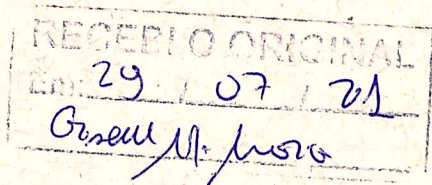 RECEBI O ORIGINAL
Em: 29 / 07 / 21